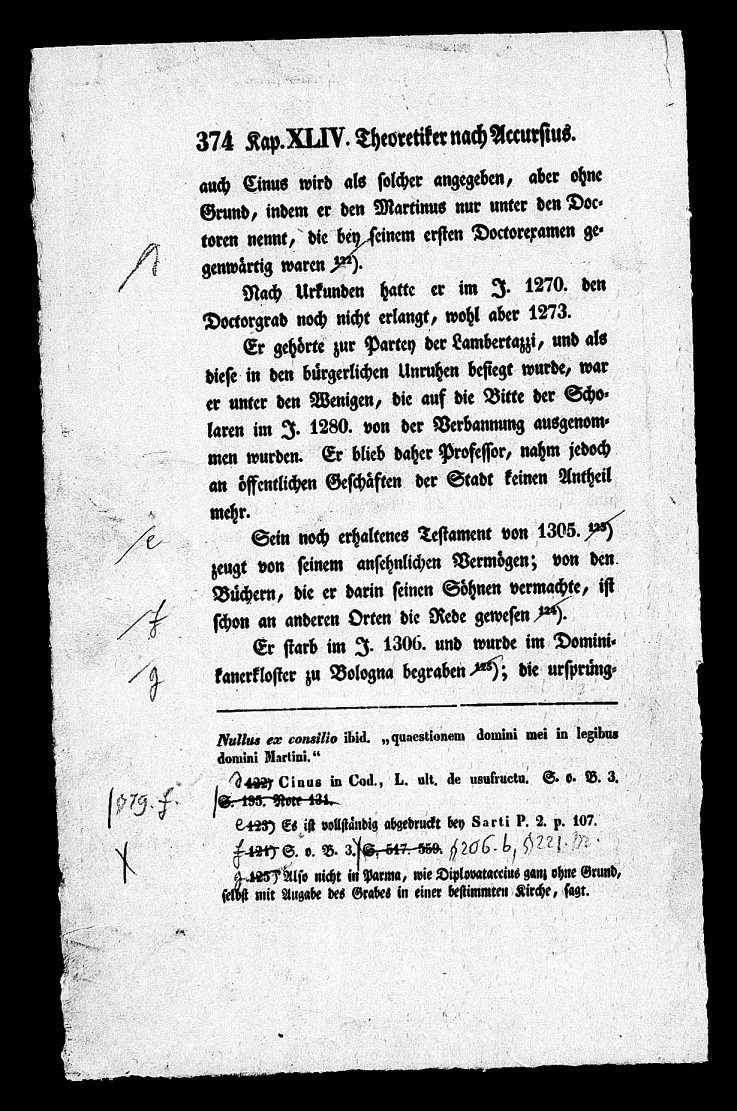 374 Kap. XLIV. Theoretiker nach Accursius.
auch Cinus wird als solcher angegeben, aber ohne
Grund, indem er den Martinus nur unter den Doc-
toren nennt, die bey seinem ersten Doctorexamen ge-
genwärtig waren 122).
Nach Urkunden hatte er im J. 1270. den
Doctorgrad noch nicht erlangt, wohl aber 1273.
Er gehörte zur Partey der Lambertazzi, und als
diese in den bürgerlichen Unruhen besiegt wurde, war
er unter den Wenigen, die auf die Bitte der Scho-
laren im J. 1280. von der Verbannung ausgenom-
men wurden. Er blieb daher Professor, nahm jedoch
an öffentlichen Geschäften der Stadt keinen Antheil
mehr.
e
Sein noch erhaltenes Testament von 1305. 123)
zeugt von seinem ansehnlichen Vermögen; von den
Büchern, die er darin seinen Söhnen vermachte, ist
f
schon an anderen Orten die Rede gewesen 124).
Er starb im J. 1306. und wurde im Domini-
g
kanerkloster zu Bologna begraben 125); die ursprüng-
Nullus ex consilio ibid. „quaestionem domini mei in legibus
domini Martini.“
d 122) Cinus in Cod., L. ult. de usufructu. S. o. B. 3.
§79. f.
S. 195. Note 131.
e 123) Es ist vollständig abgedruckt bey Sarti P. 2. p. 107.
f 124) S. o. B. 3. S. 517. 559. §206. b, §221. m.
g 125) Also nicht in Parma, wie Diplovataccius ganz ohne Grund,
selbst mit Angabe des Grabes in einer bestimmten Kirche, sagt.